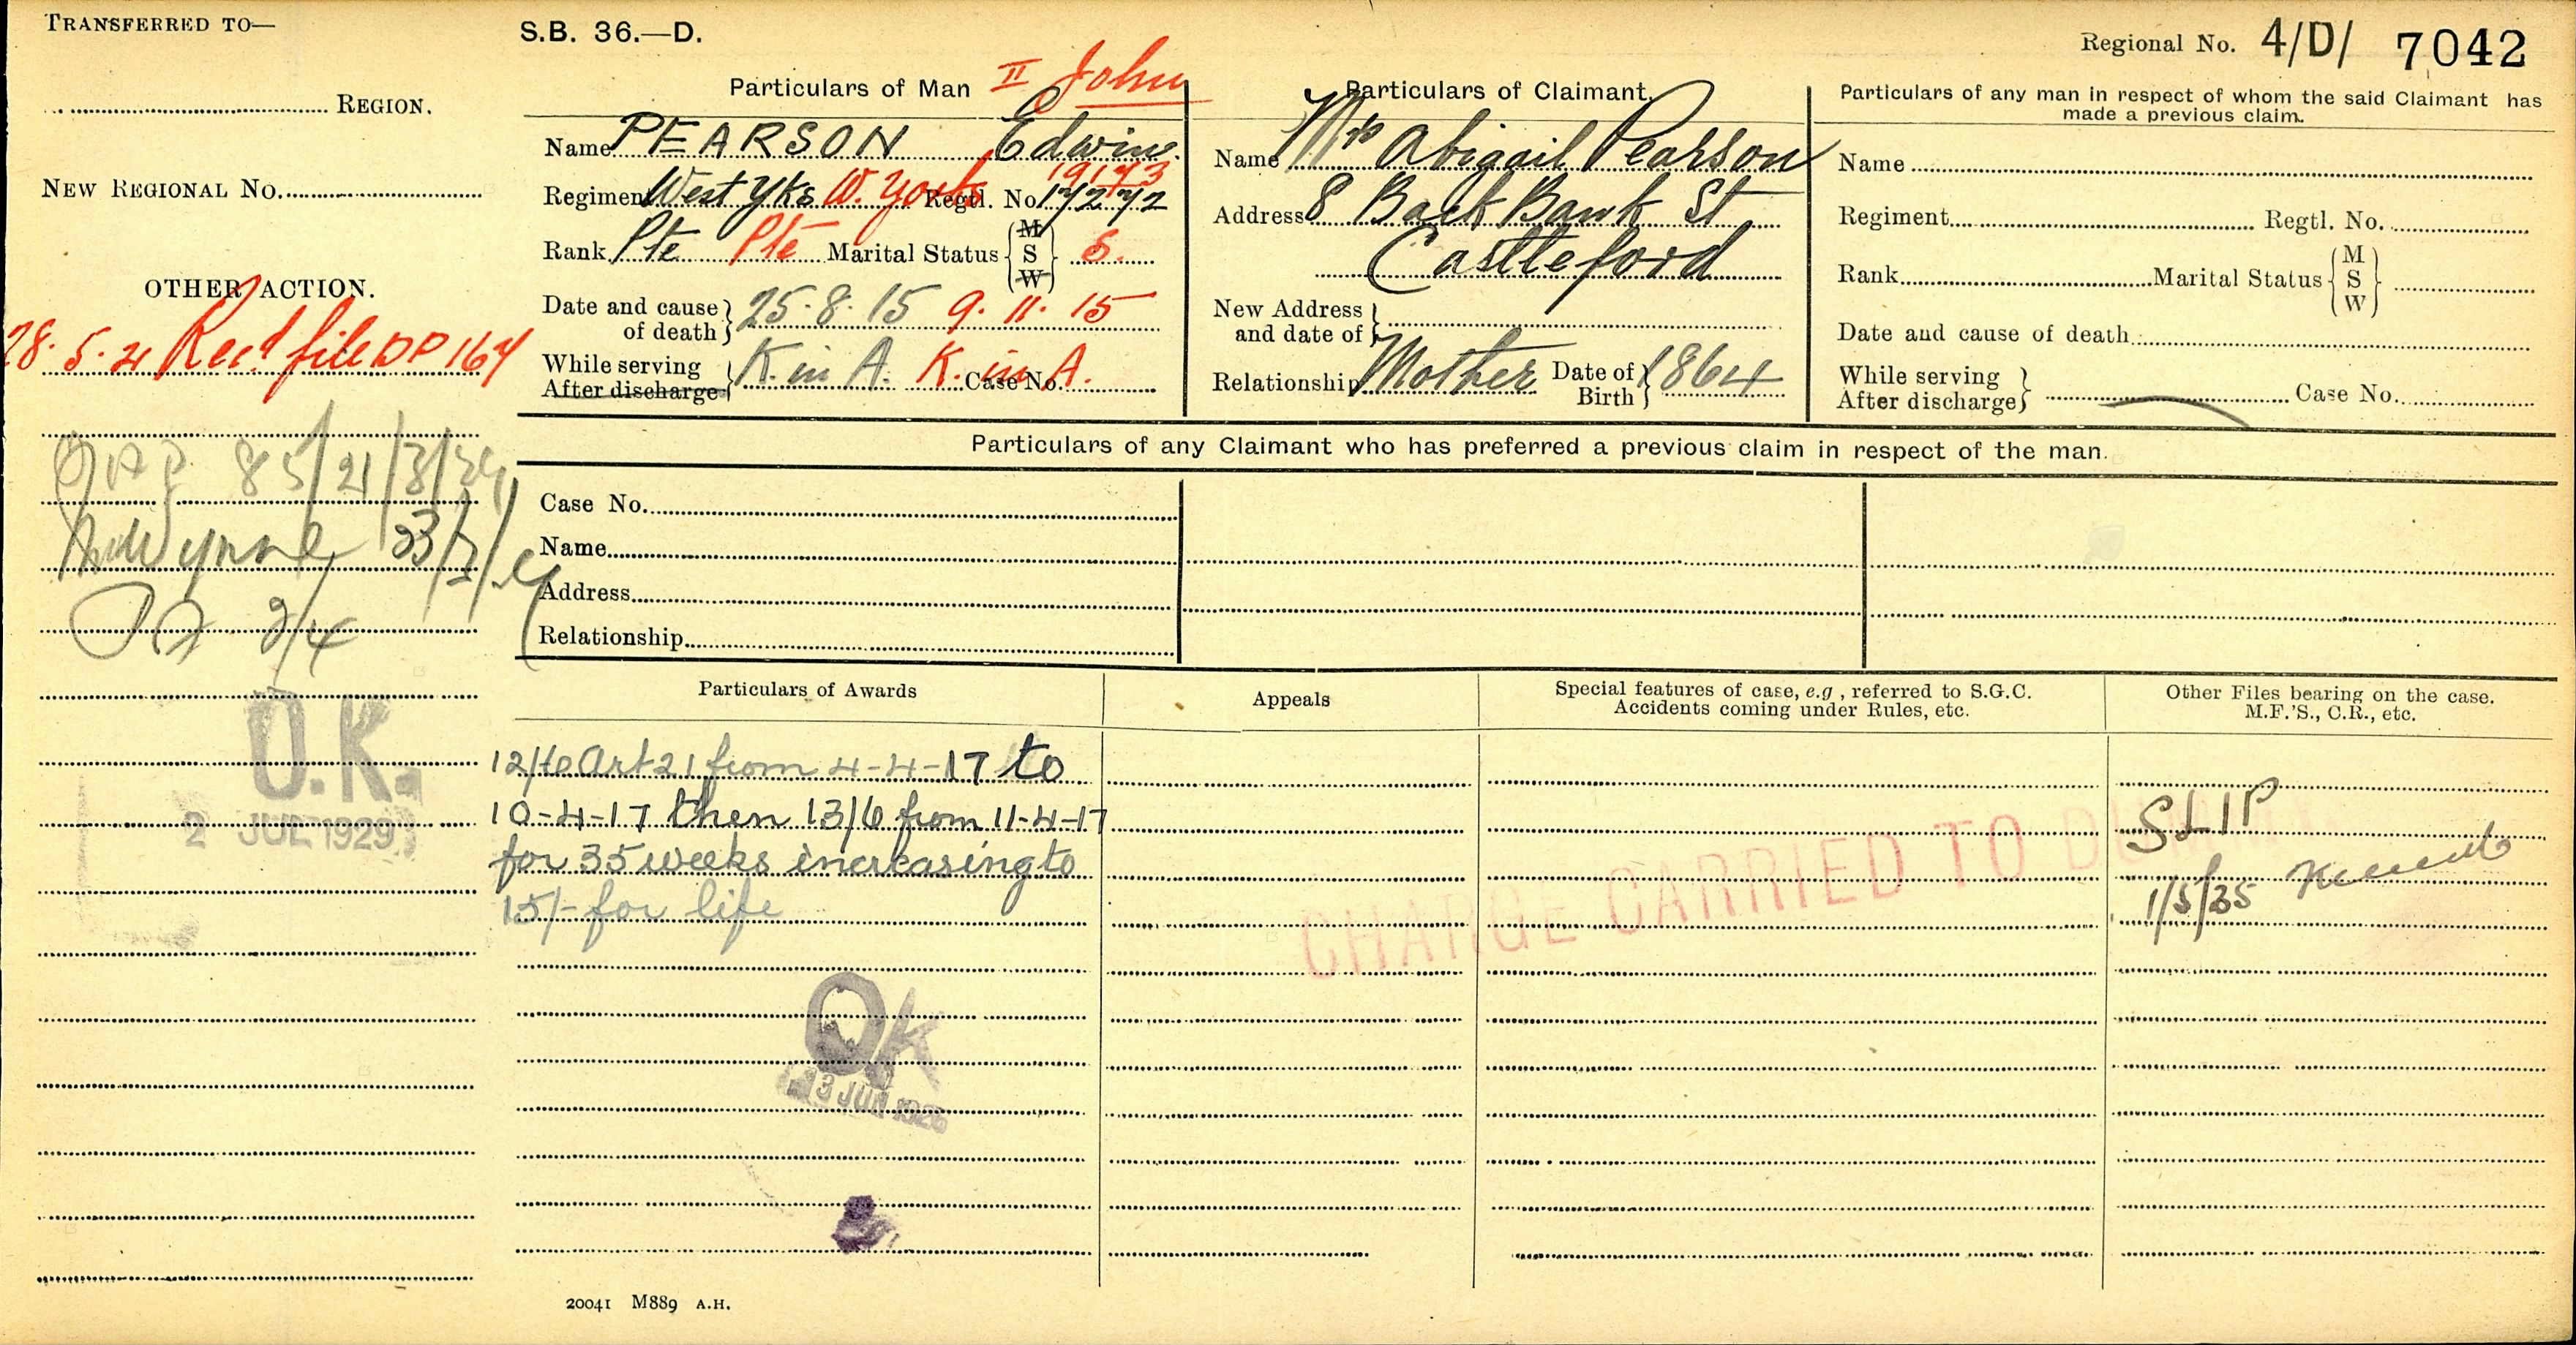 TRANSFERRED TO—
S.B. 36.—D.
Regional No. 4/D/ 7042
REGION.
NEW REGIONAL No.
OTHER ACTION.
28.5.21 Recd file DP 164
85/21/3/24
Wynne 23/
2/4
O.K.
2 JUL 1929
Particulars of Man II John
Name PEARSON Edwin
Regiment West Yks W. Yorks Regtl. No. 17272 19173
Rank Pte Pte Marital Status { M S W } S.
Date and cause of death } 25.8.15 9.11.15
While serving After discharge } K. in A. K. in A. Case No.
Particulars of Claimant.
Name Mrs Abigail Pearson
Address 8 Back Bank St
Castleford
New Address and date of }
Relationship Mother Date of Birth } 1864
Particulars of any man in respect of whom the said Claimant has
made a previous claim.
Name
Regiment Regtl. No.
Rank Marital Status { M S W }
Date and cause of death
While serving After discharge } Case No.
Particulars of any Claimant who has preferred a previous claim in respect of the man.
Case No.
Name
Address
Relationship
Particulars of Awards
12/10 Art 21 from 4-4-17 to
10-4-17 then 13/6 from 11-4-17
for 35 weeks increasing to
15/- for life
OK
3 JUN 1926
Appeals
Special features of case, e.g., referred to S.G.C.
Accidents coming under Rules, etc.
CHARGE CARRIED TO
Other Files bearing on the case.
M.F.'S., C.R., etc.
SLIP
1/5/35
20041 M889 A.H.